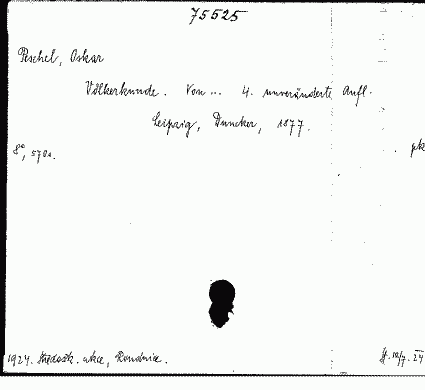 75525
Peschel, Oskar
Völkerkunde. Von ... 4. unveränderte Aufl.
Leipzig, Duncker, 1877.
8°, 570 s.
pk
1924. akce, Roudnice.
10/7. 24